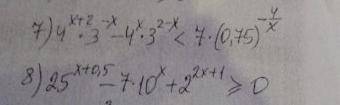 7) 4^{x+2} · 3^{-x} - 4^x · 3^{2-x} < 7 · (0,75)^{-4/x}
8) 25^{x+0,5} - 7 · 10^x + 2^{2x+1} ⩾ 0